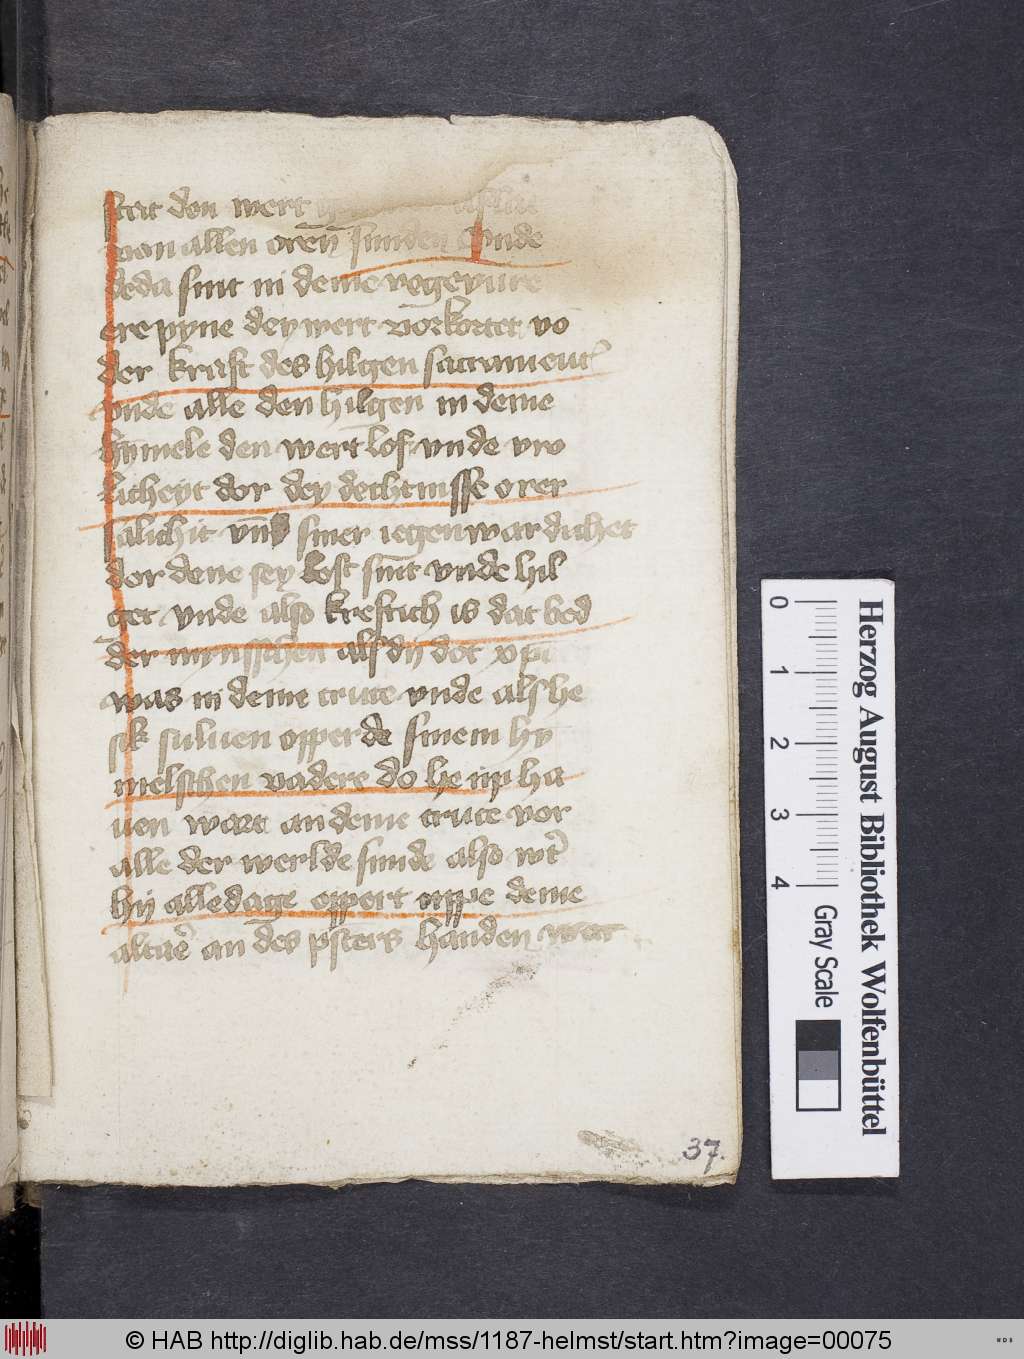 stat don wert
van allen oren sunden vnde
deda sint in deme vegevure
ere pyne dey wert vorkortet vō
der kraft des hilgen sacrament
vnde alle den hilgen in deme
hymele den wert lof vnde vro
licheyt dor dey dechtnisse orer
salichit vnd siner iegenwardichet
dor dene sey lost sint vnde hil
get vnde also kreftich is dat bed
der mynsschen als dy dot xpi
was in deme cruce vnde als he
sik suluen opperde sinem hy
melschen vadere do he up ha
uen wart an deme cruce vor
alle der werlde sunde also wt
hy alle dage oppert uppe deme
altaer an des psters handen wat
37.
0 1 2 3 4
Herzog August Bibliothek Wolfenbüttel
Gray Scale
© HAB http://diglib.hab.de/mss/1187-helmst/start.htm?image=00075